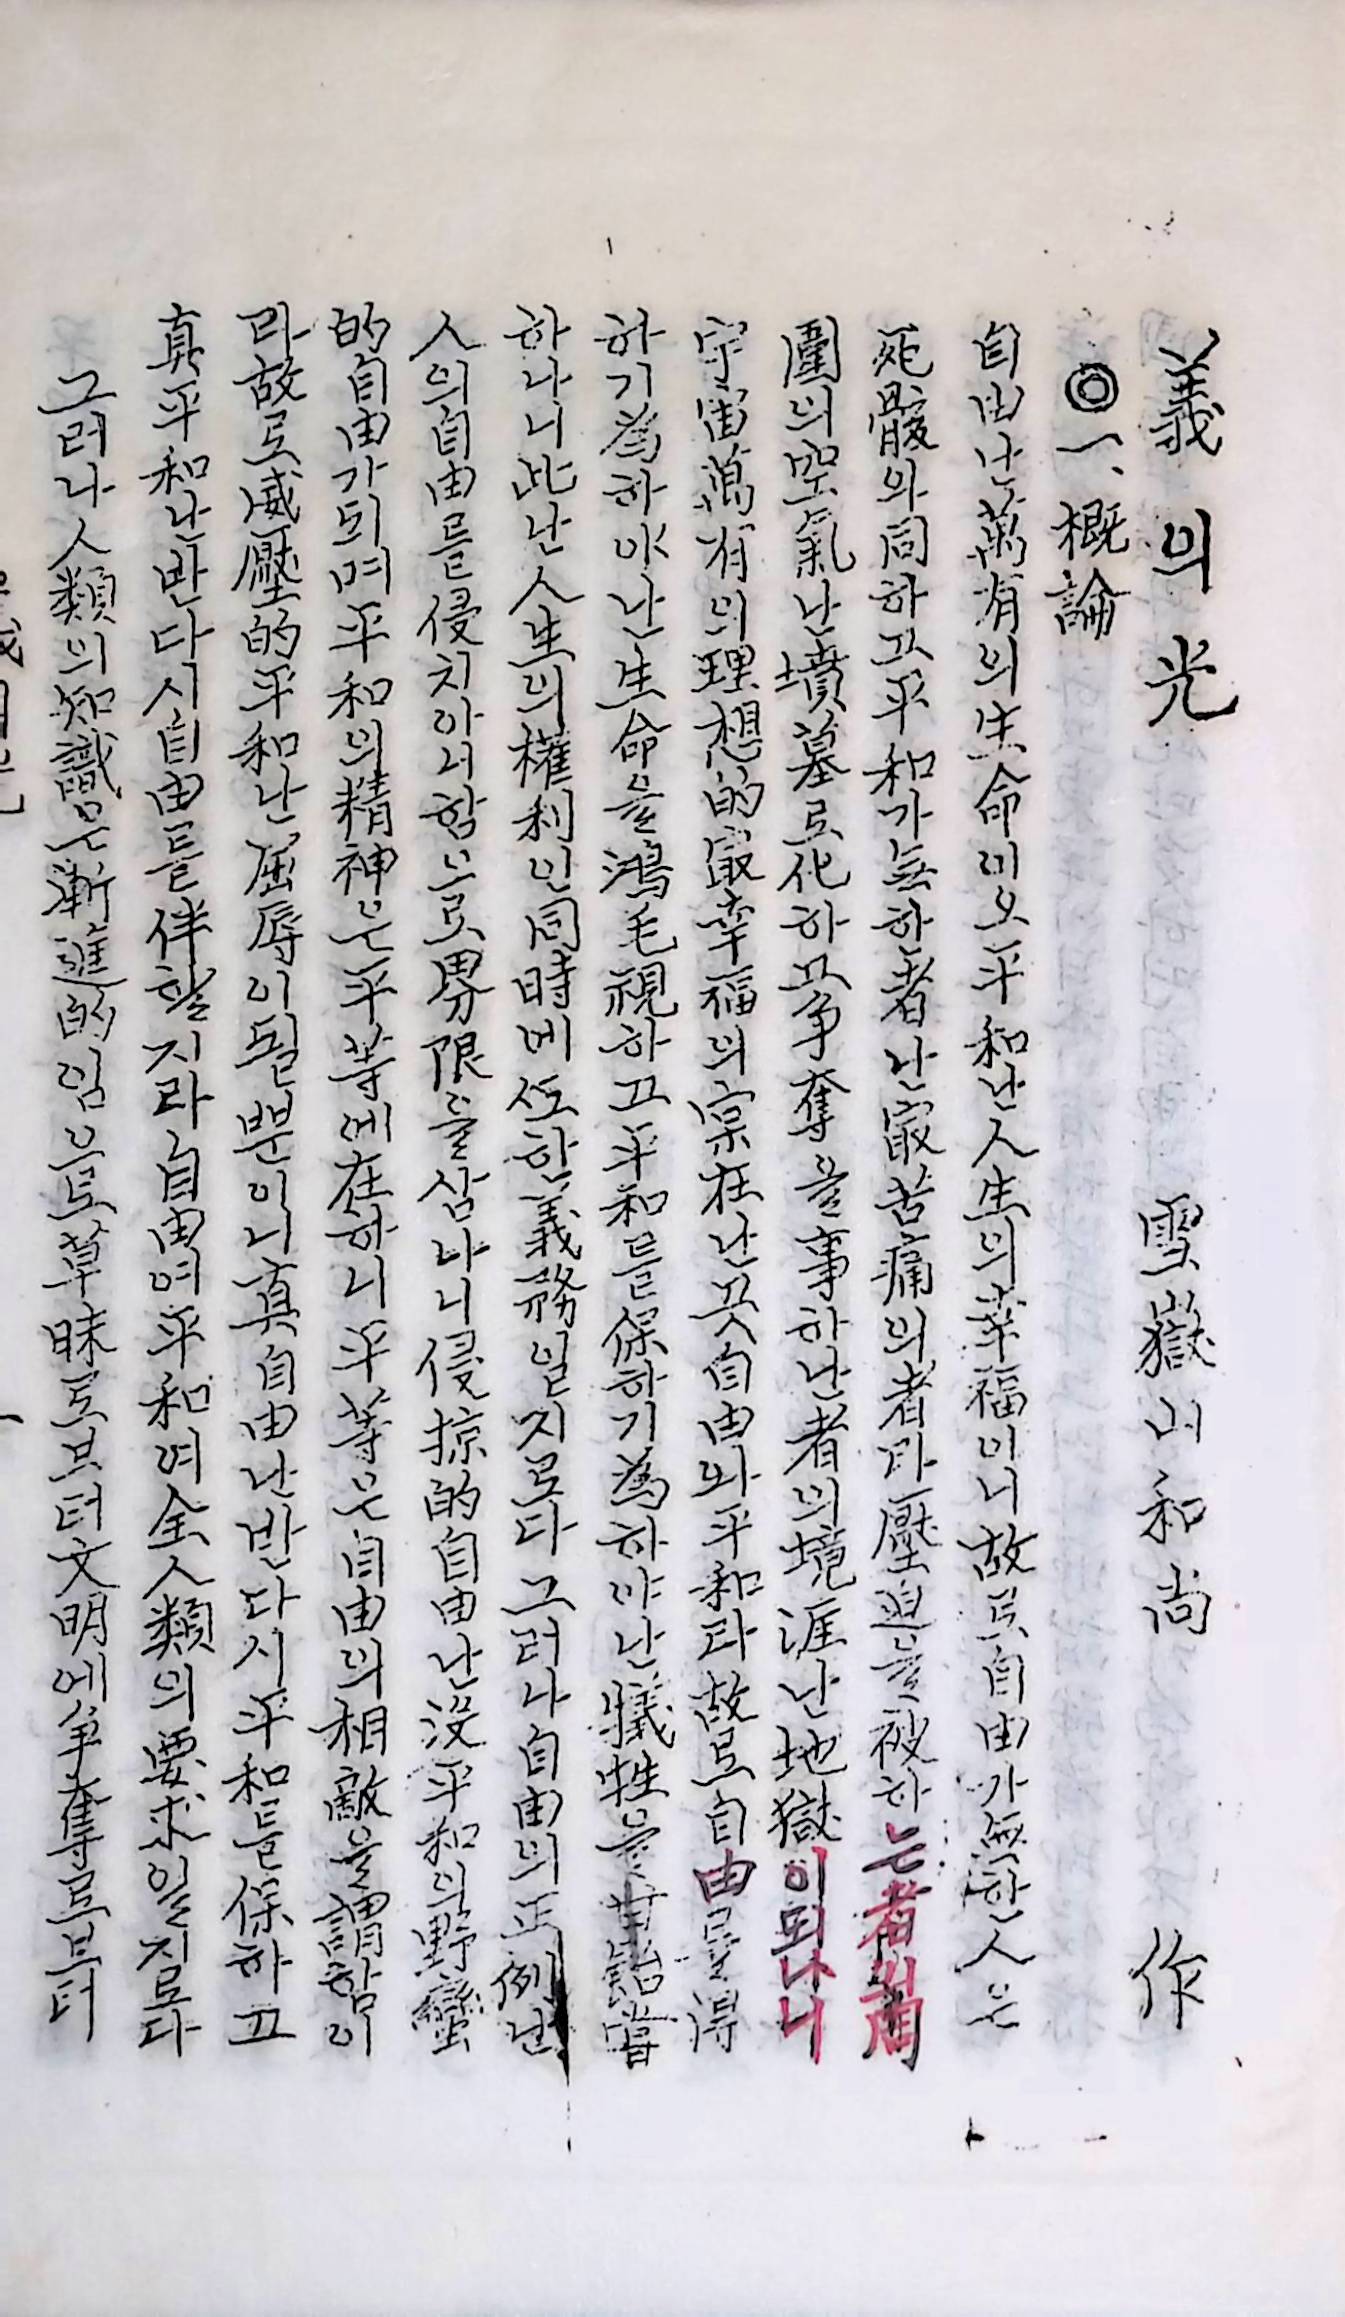 義의光 雪嶽山和尚 作
◎一、概論
自由난萬有의生命이오平和난人生의幸福이니故로自由가無한人은
死骸와同하고平和가無한者난最苦痛의者라壓迫을被하는者의周
圍의空氣난墳墓로化하고争奪을事하난者의境涯난地獄이되나니
宇宙萬有의理想的最幸福의實在난곳自由와平和라故로自由를得
하기爲하야난生命을鴻毛視하고平和를保하기爲하야난犧牲을甘飴嘗
하나니此난人生의權利인同時에또한義務일지로다그러나自由의正例난
人의自由를侵치아니함으로界限을삼나니侵掠的自由난沒平和의野蠻
的自由가되며平和의精神은平等에在하니平等은自由의相敵을謂함이
라故로威壓的平和난屈辱이될뿐이니真自由난반다시平和를保하고
真平和난반다시自由를伴할지라自由여平和여全人類의要求일지로다
그러나人類의知識은漸進的임으로草昧로브터文明에爭奪로브터